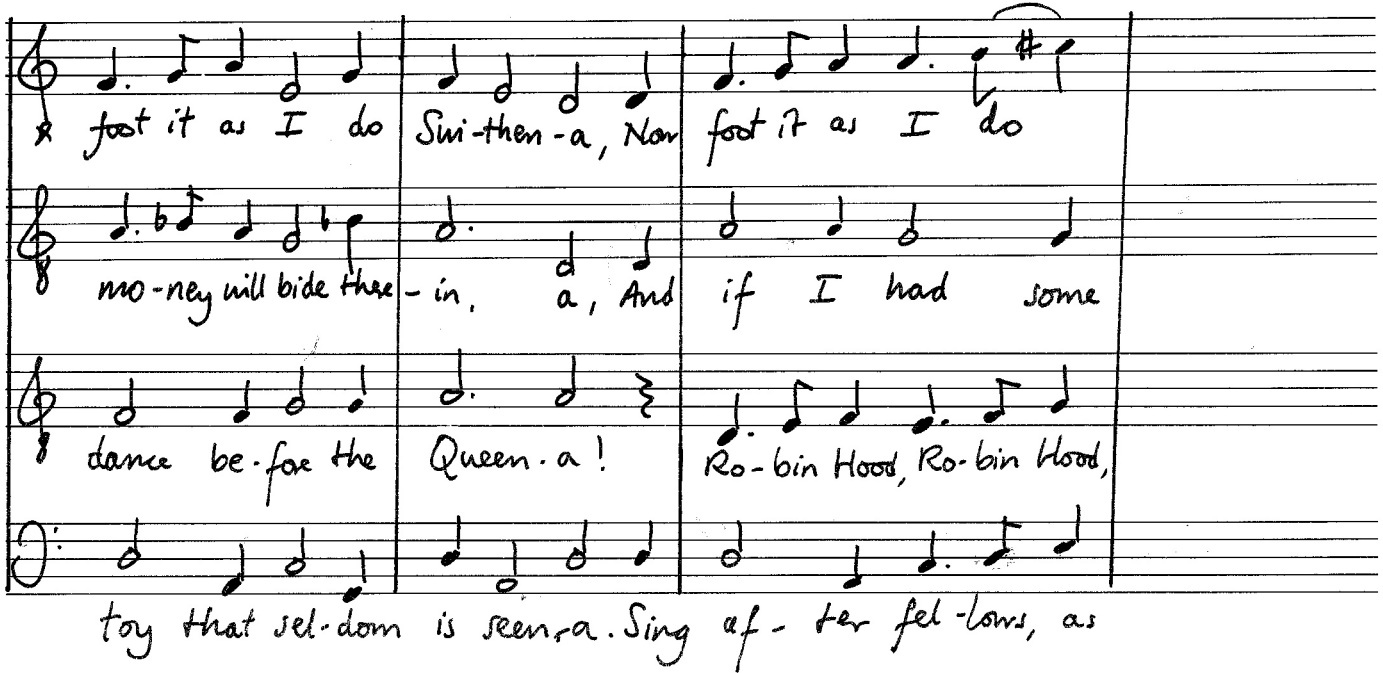 foot it as I do Swi-then-a, Now foot it as I do
mo-ney will bide there-in, a, And if I had some
dance be-fore the Queen-a! Ro-bin Hood, Ro-bin Hood,
toy that sel-dom is seen-a. Sing af-ter fel-lows, as